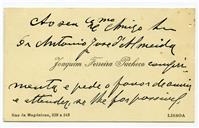 Ao seu Exmo Amigo Sr
Dr Antonio José d'Almeida
Joaquim Teixeira Pacheco cumpri
menta e pede o favor de ouvir
e attender, se lhe for possivel
Rua da Magdalena, 239 a 243 LISBOA